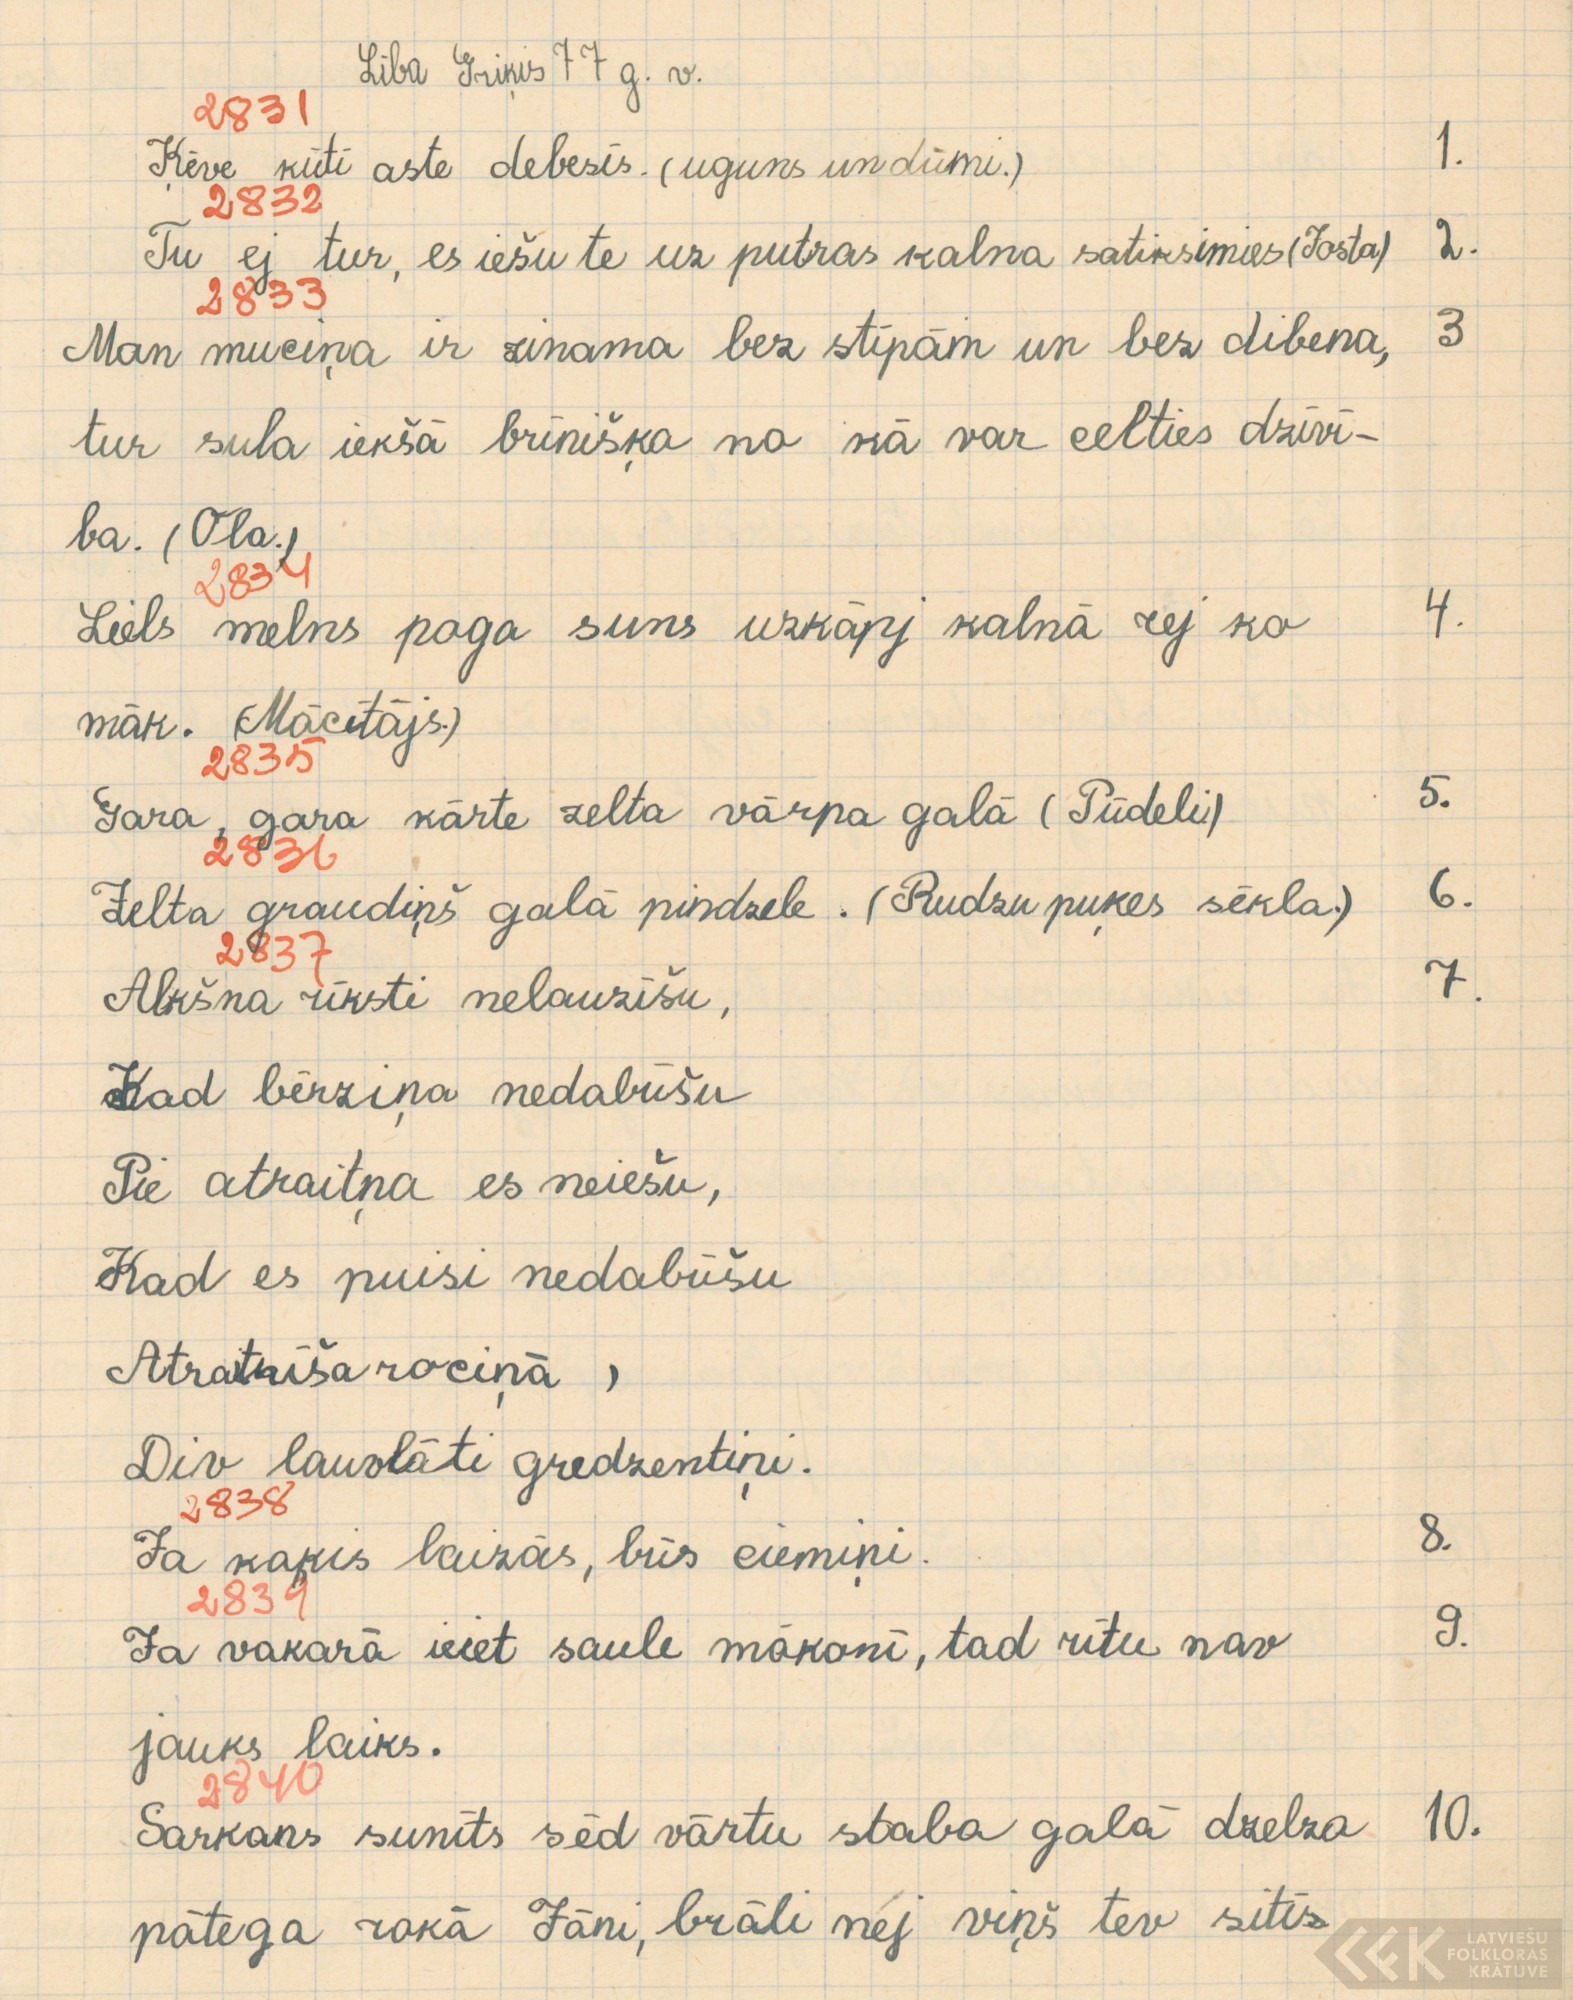 Lība Griķis 77 g. v.
2831
Ķēve kūtī aste debesīs. (uguns un dūmi.) 1.
2832
Tu ej tur, es iešu te uz putras kalna satiksimies (Josta) 2.
2833
Man muciņa ir zinama bez stīpām un bez dibena, 3
tur sula iekšā brīnišķa no kā var celties dzīvī-
ba. (Ola.)
2834
Liels melns poga suns uzkāpj kalnā rej ko 4.
māk. (Mācitājs.)
2835
Gara, gara kārte zelta vārpa galā (Pūdeli) 5.
2836
Zelta graudiņš galā pindzele. (Rudzu puķes sēkla.) 6.
2837
Alkšna rīksti nelauzīšu, 7.
Kad bērziņa nedabūšu
Pie atraitņa es neiešu,
Kad es puisi nedabūšu
Atraitnīša rociņā,
Div lauvlāti gredzentiņi.
2838
Ja kaķis laizās, būs ciemiņi. 8.
2839
Ja vakarā ieiet saule mākonī, tad rītu nav 9.
jauks laiks.
2840
Sarkans sunīts sēd vārtu staba galā dzelza 10.
pātega rokā Jāni, brāli nēj viņš tev sitīs
LATVIEŠU
FOLKLORAS
KRĀTUVE